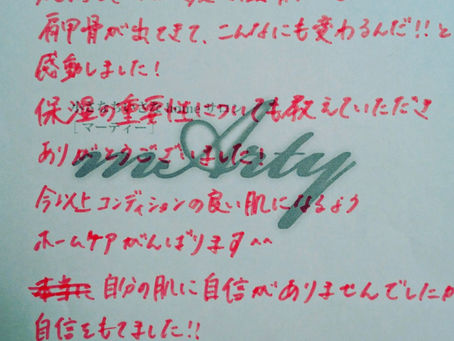 肩甲骨が出てきて、こんなにも変わるんだ!!と
感動しました!
保湿の重要性についても教えていただき
[マーティー]
mArty
ありがとうございました!
今以上コンディションの良い肌になるよう
ホームケアがんばります^^
自分の肌に自信がありませんでしたが
自信をもてました!!